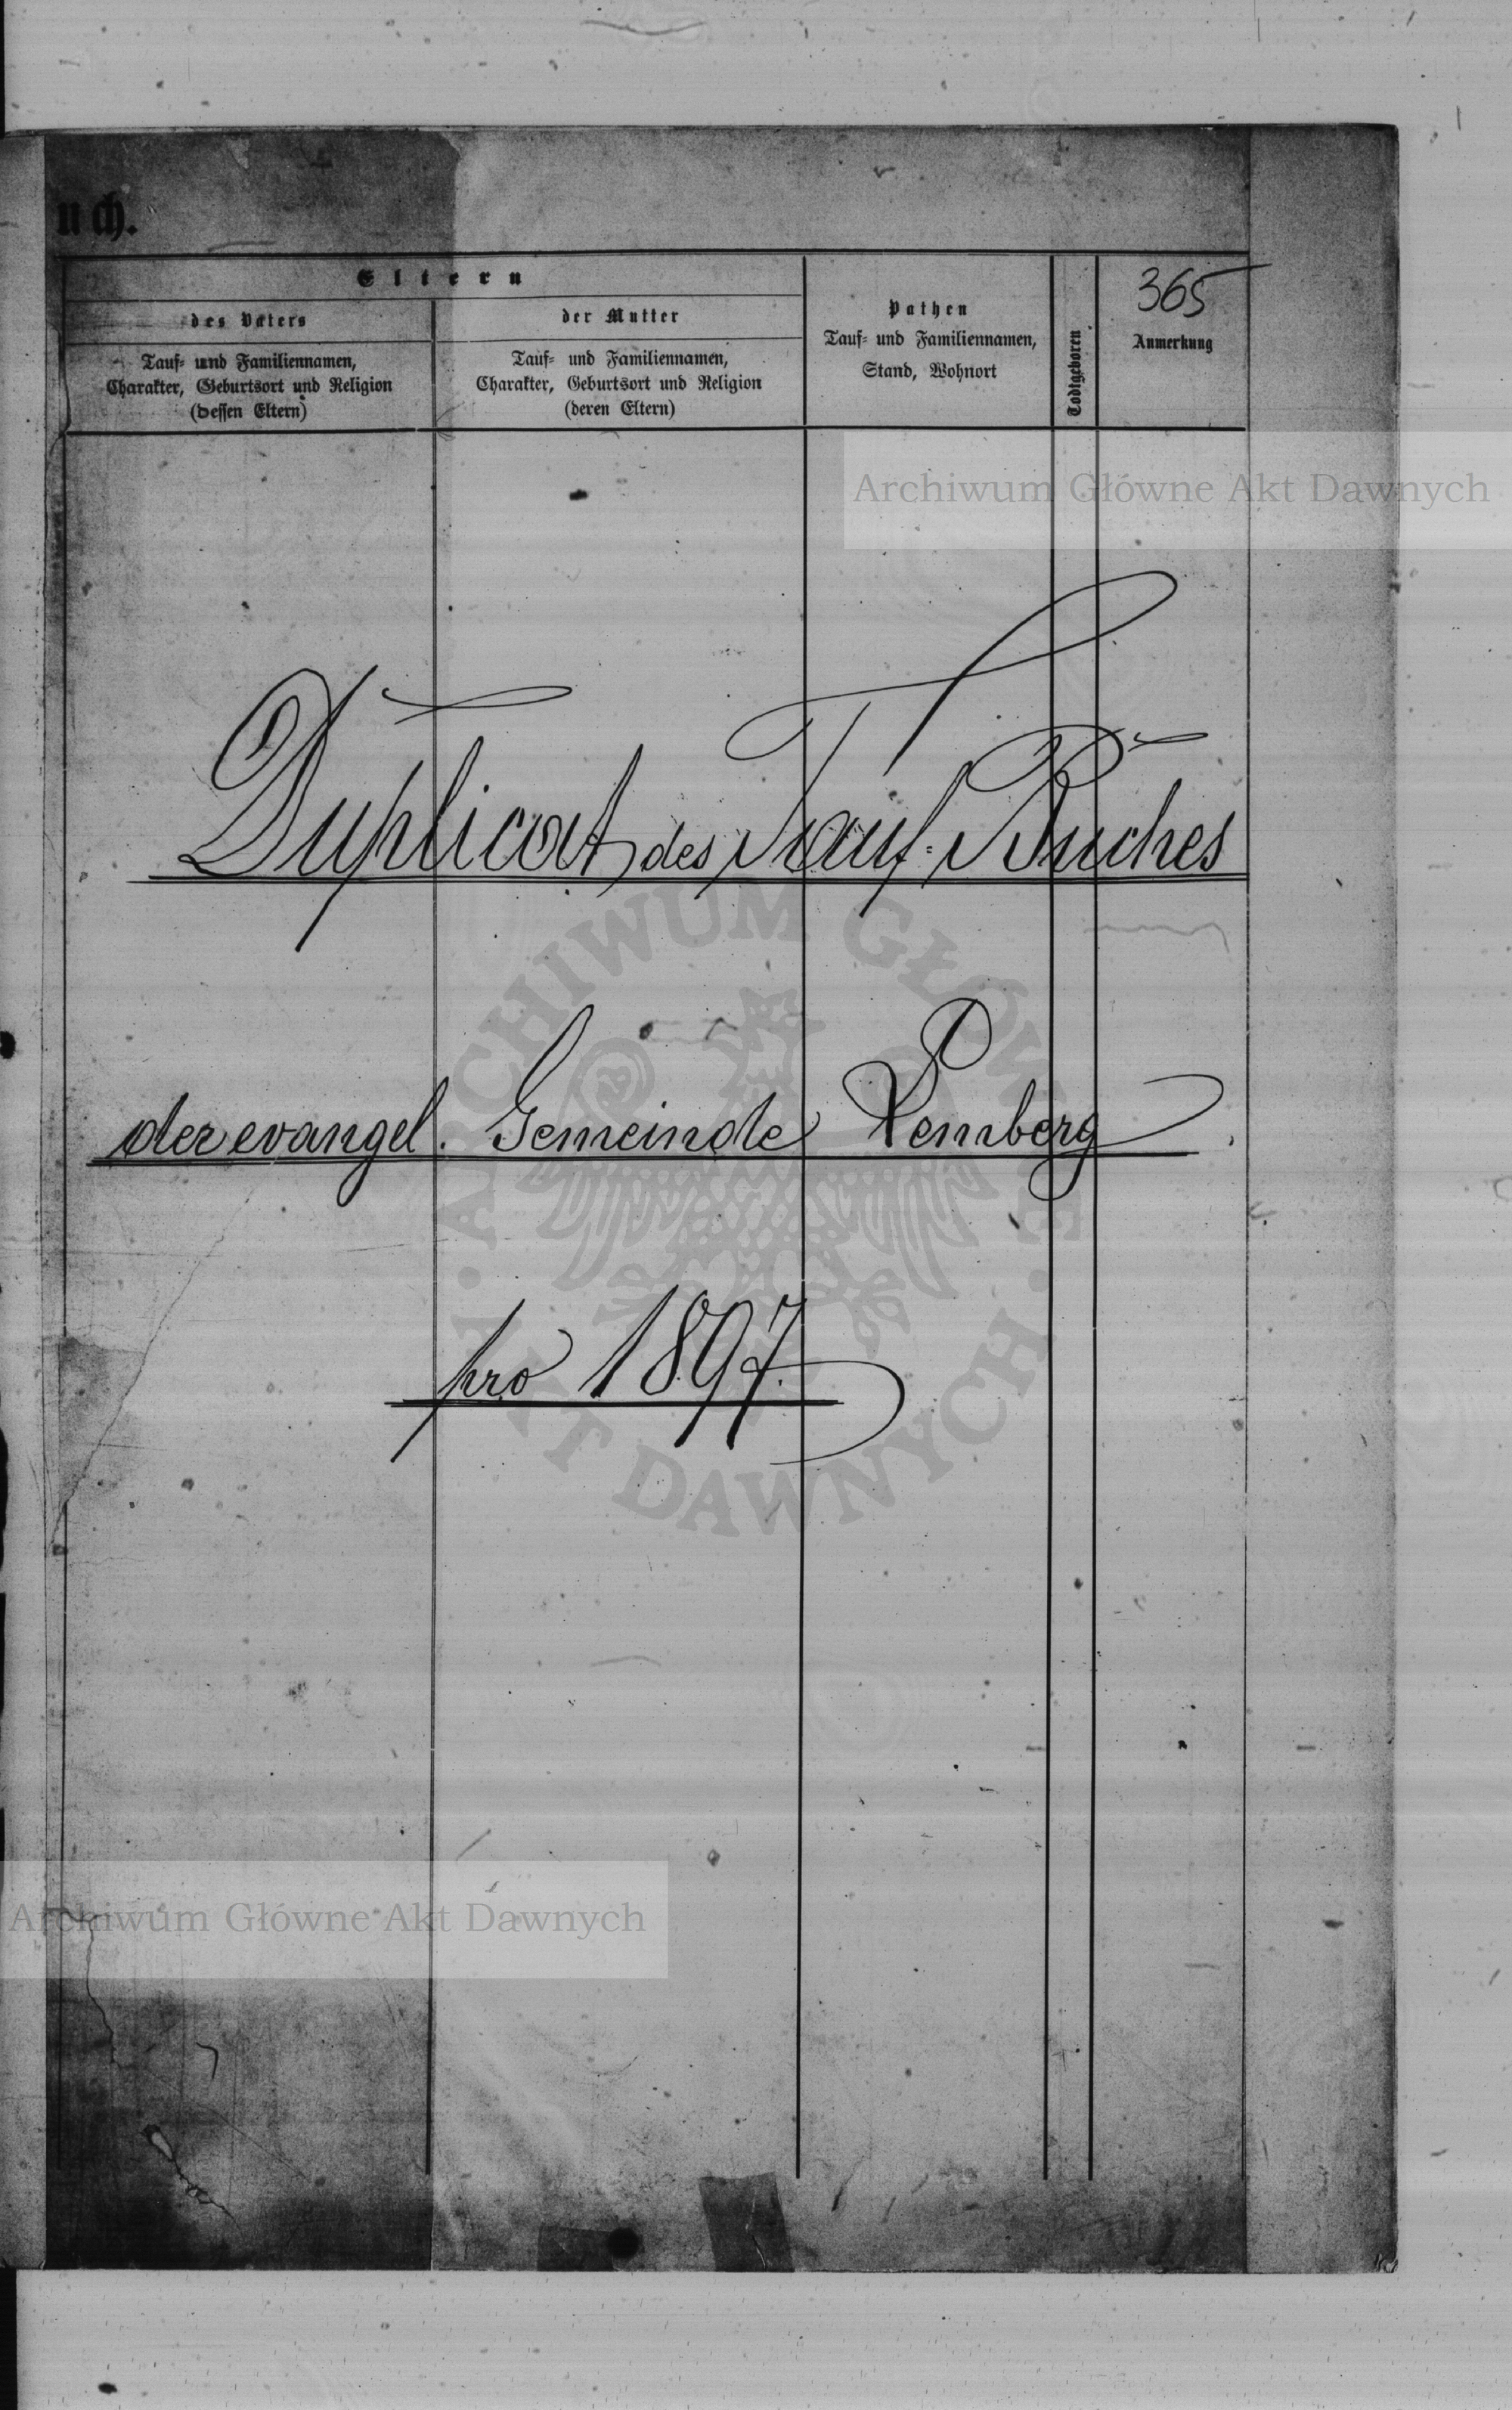 uch.
Eltern
des Vaters
Tauf- und Familiennamen,
Charakter, Geburtsort und Religion
(dessen Eltern)
der Mutter
Tauf- und Familiennamen,
Charakter, Geburtsort und Religion
(deren Eltern)
Pathen
Tauf- und Familiennamen,
Stand, Wohnort
Todtgeboren
365
Anmerkung
Archiwum Główne Akt Dawnych
Duplicat des Tauf-Buches
der evangel. Gemeinde Lemberg
pro 1897.
ARCHIWUM GŁÓWNE · AKT DAWNYCH ·
Archiwum Główne Akt Dawnych